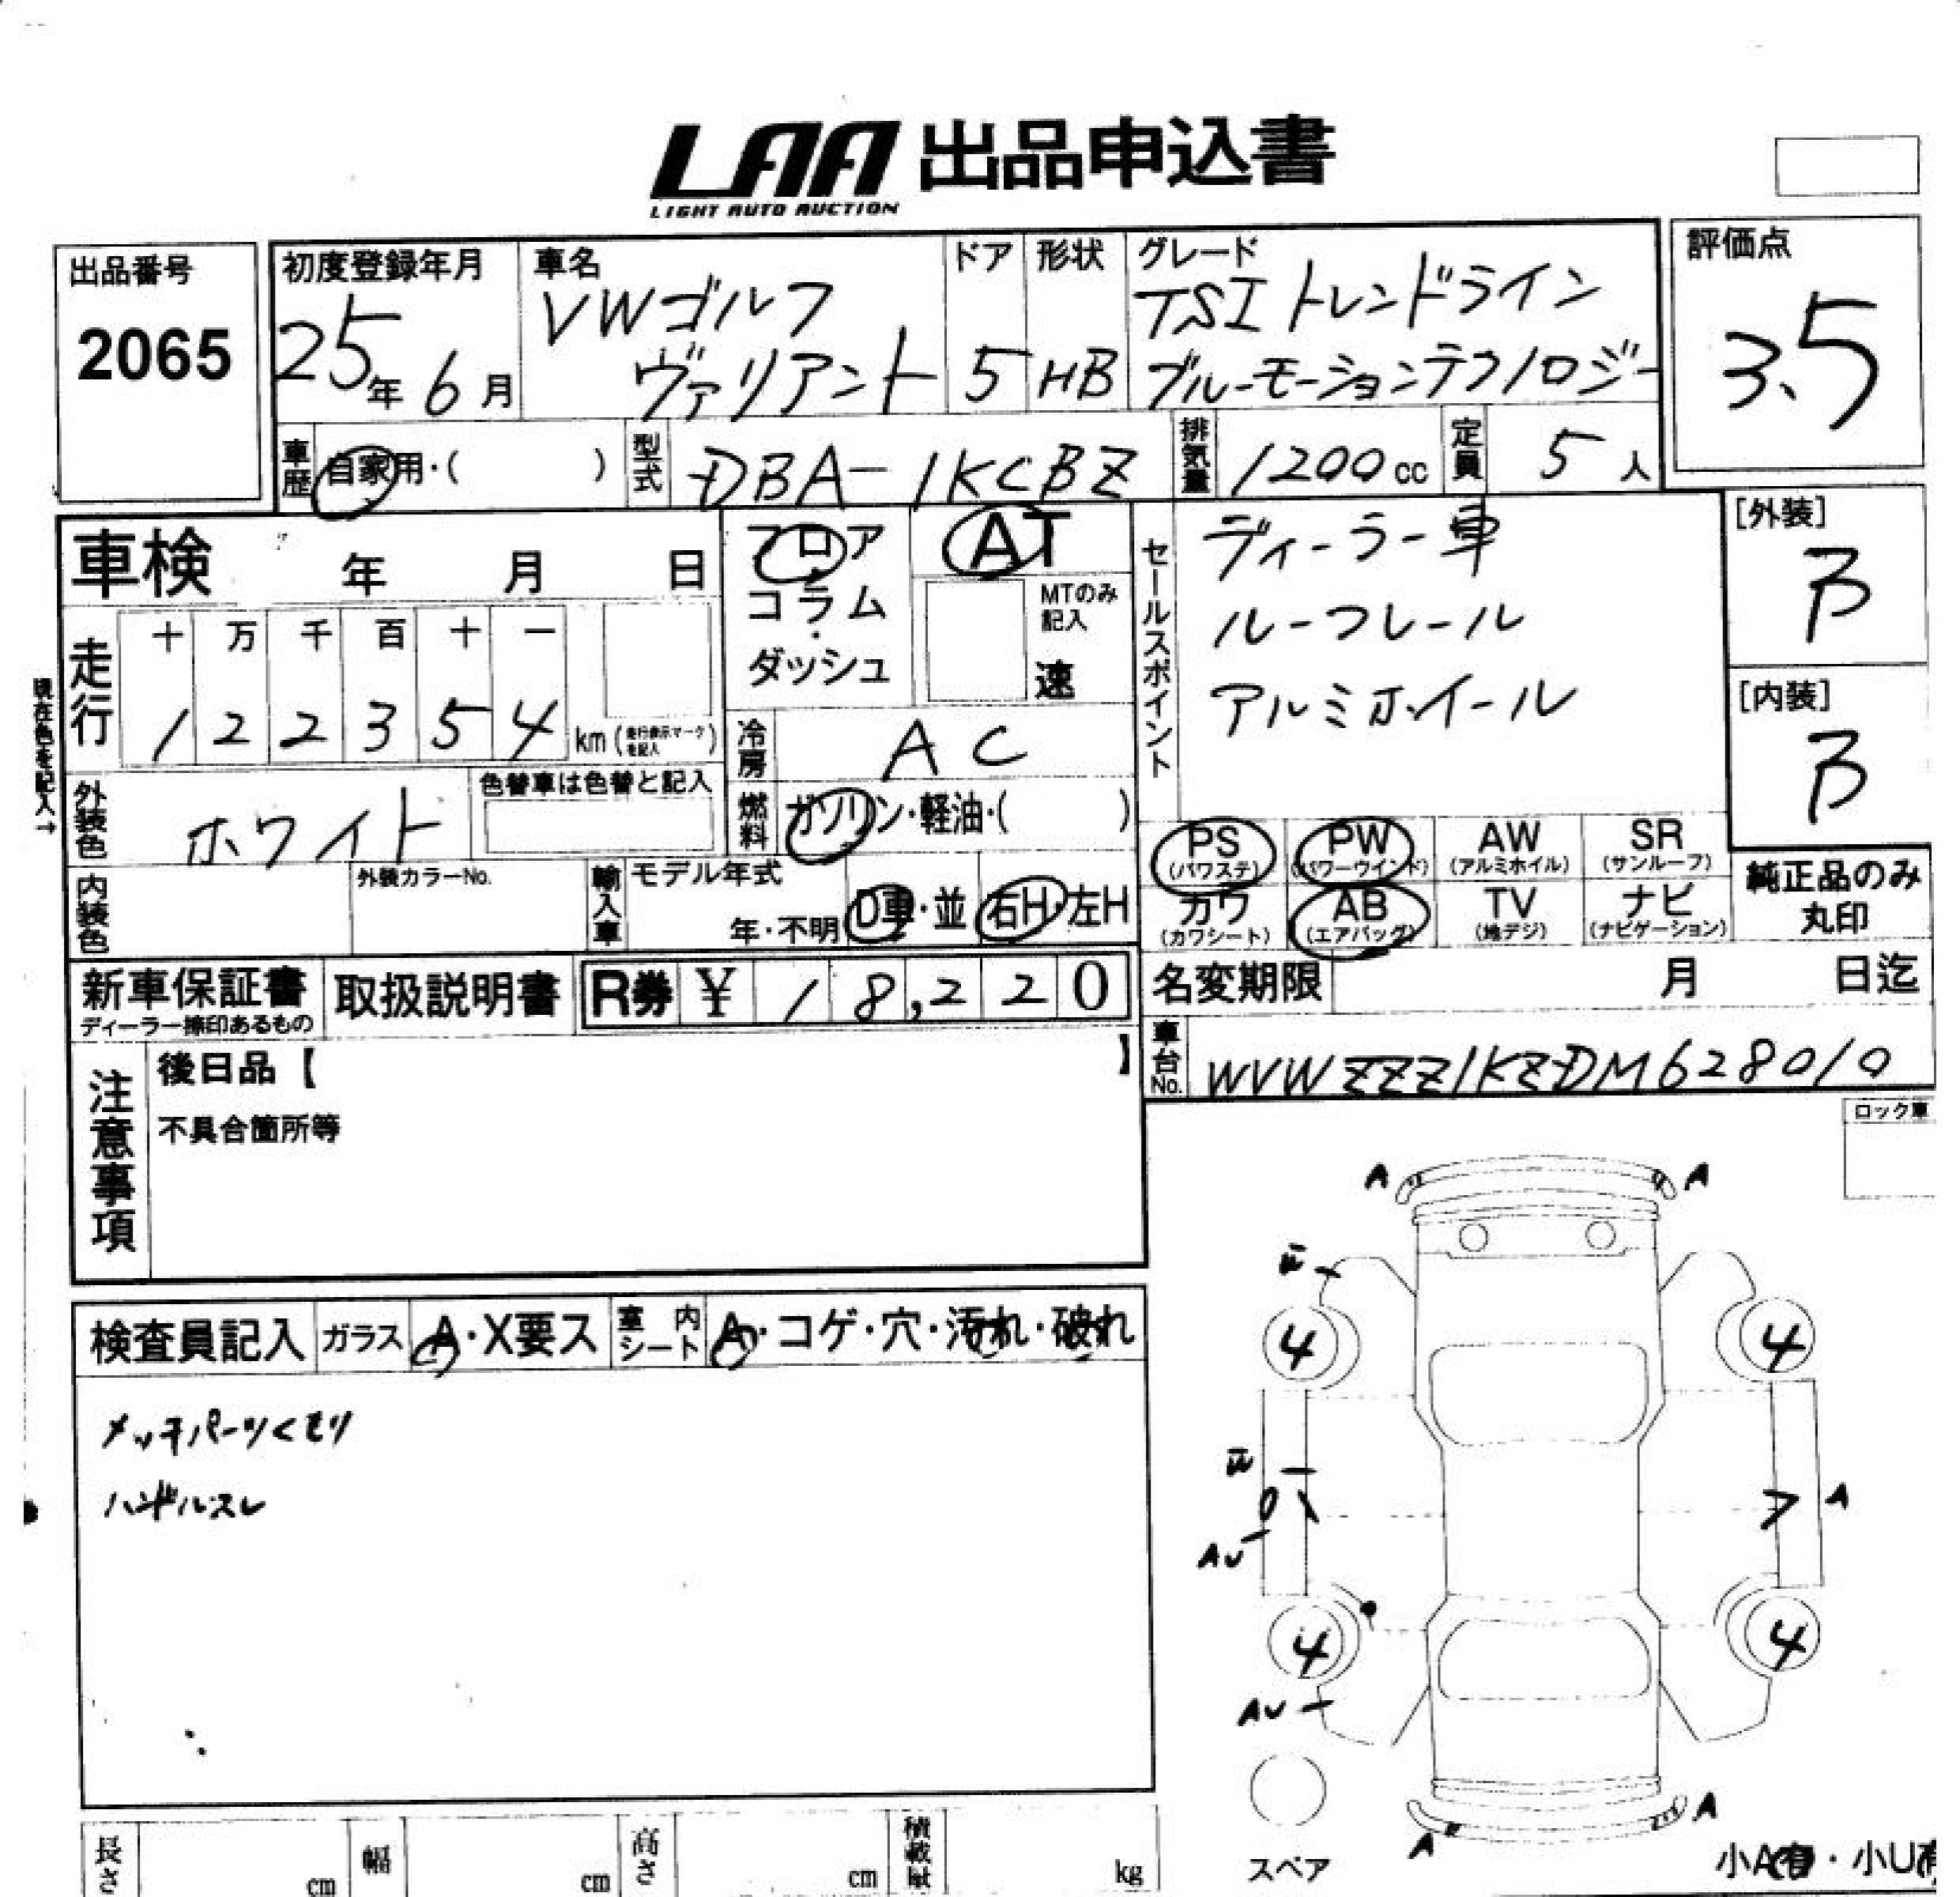 LAA 出品申込書
LIGHT AUTO AUCTION
出品番号
2065
初度登録年月
25年6月
車名
VWゴルフ
ヴァリアント
ドア
5
形状
HB
グレード
TSIトレンドライン
ブルーモーションテクノロジー
評価点
3.5
車歴
自家用・( )
型式
DBA-1KCBZ
排気量
1200cc
定員
5人
車検
年 月 日
フロア
コラム・
ダッシュ
AT
MTのみ
記入
速
セールスポイント
ディーラー車
ルーフレール
アルミホイール
[外装]
B
[内装]
B
現在色を記入→
走行
十 万 千 百 十 一
1 2 2 3 5 4 km(走行表示マークを記入)
冷房
AC
外装色
ホワイト
色替車は色替と記入
燃料
ガソリン・軽油・( )
PS
(パワステ)
PW
(パワーウインド)
AW
(アルミホイル)
SR
(サンルーフ)
内装色
外装カラーNo.
輸入車
モデル年式
年・不明
D車・並
右H・左H
カワ
(カワシート)
AB
(エアバッグ)
TV
(地デジ)
ナビ
(ナビゲーション)
純正品のみ
丸印
新車保証書
ディーラー捺印あるもの
取扱説明書
R券 ¥ 18,220
名変期限
月 日迄
車台No.
WVWZZZ1KZDM628010
注意事項
後日品【 】
不具合箇所等
ロック車
検査員記入
ガラス
A・X要ス
室内シート
A・コゲ・穴・汚れ・破れ
メッキパーツくもり
ハンドルスレ
A A
W
4 4
W
A
AU
4 4
AU
A
A
スペア
小A有・小U有
長さ
cm
幅
cm
高さ
cm
積載量
kg